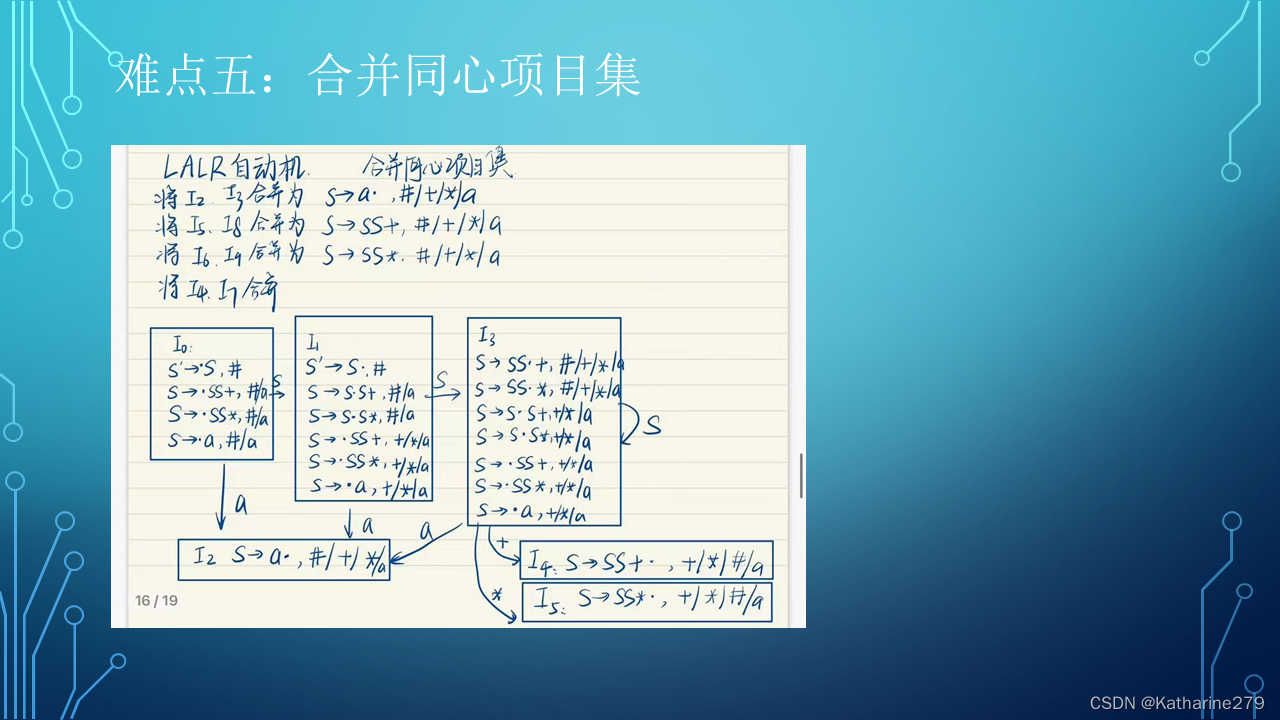 难点五：合并同心项目集
LALR自动机. 合并同心项目集
将I2、I3合并为 S→a· ,#/+/*/a
将I5、I8合并为 S→SS+, #/+/*/a
将I6、I9合并为 S→SS*· #/+/*/a
将I4、I7合并
I0:
S'→·S,#
S→·SS+, #/a
S→·SS*,#/a
S→·a,#/a
S
I1
S'→S·,#
S→S·S+,#/a
S→S·S*,#/a
S→·SS+,+/*/a
S→·SS*,+/*/a
S→·a,+/*/a
S
I3
S→SS·+,#/+/*/a
S→SS·*,#/+/*/a
S→S·S+,+/*/a
S→S·S*,+/*/a
S→·SS+,+/*/a
S→·SS*,+/*/a
S→·a,+/*/a
S
a
a
a
+
*
I2 S→a·,#/+/*/a
I4: S→SS+·, +/*/#/a
I5: S→SS*·, +/*/#/a
16 / 19
CSDN @Katharine279